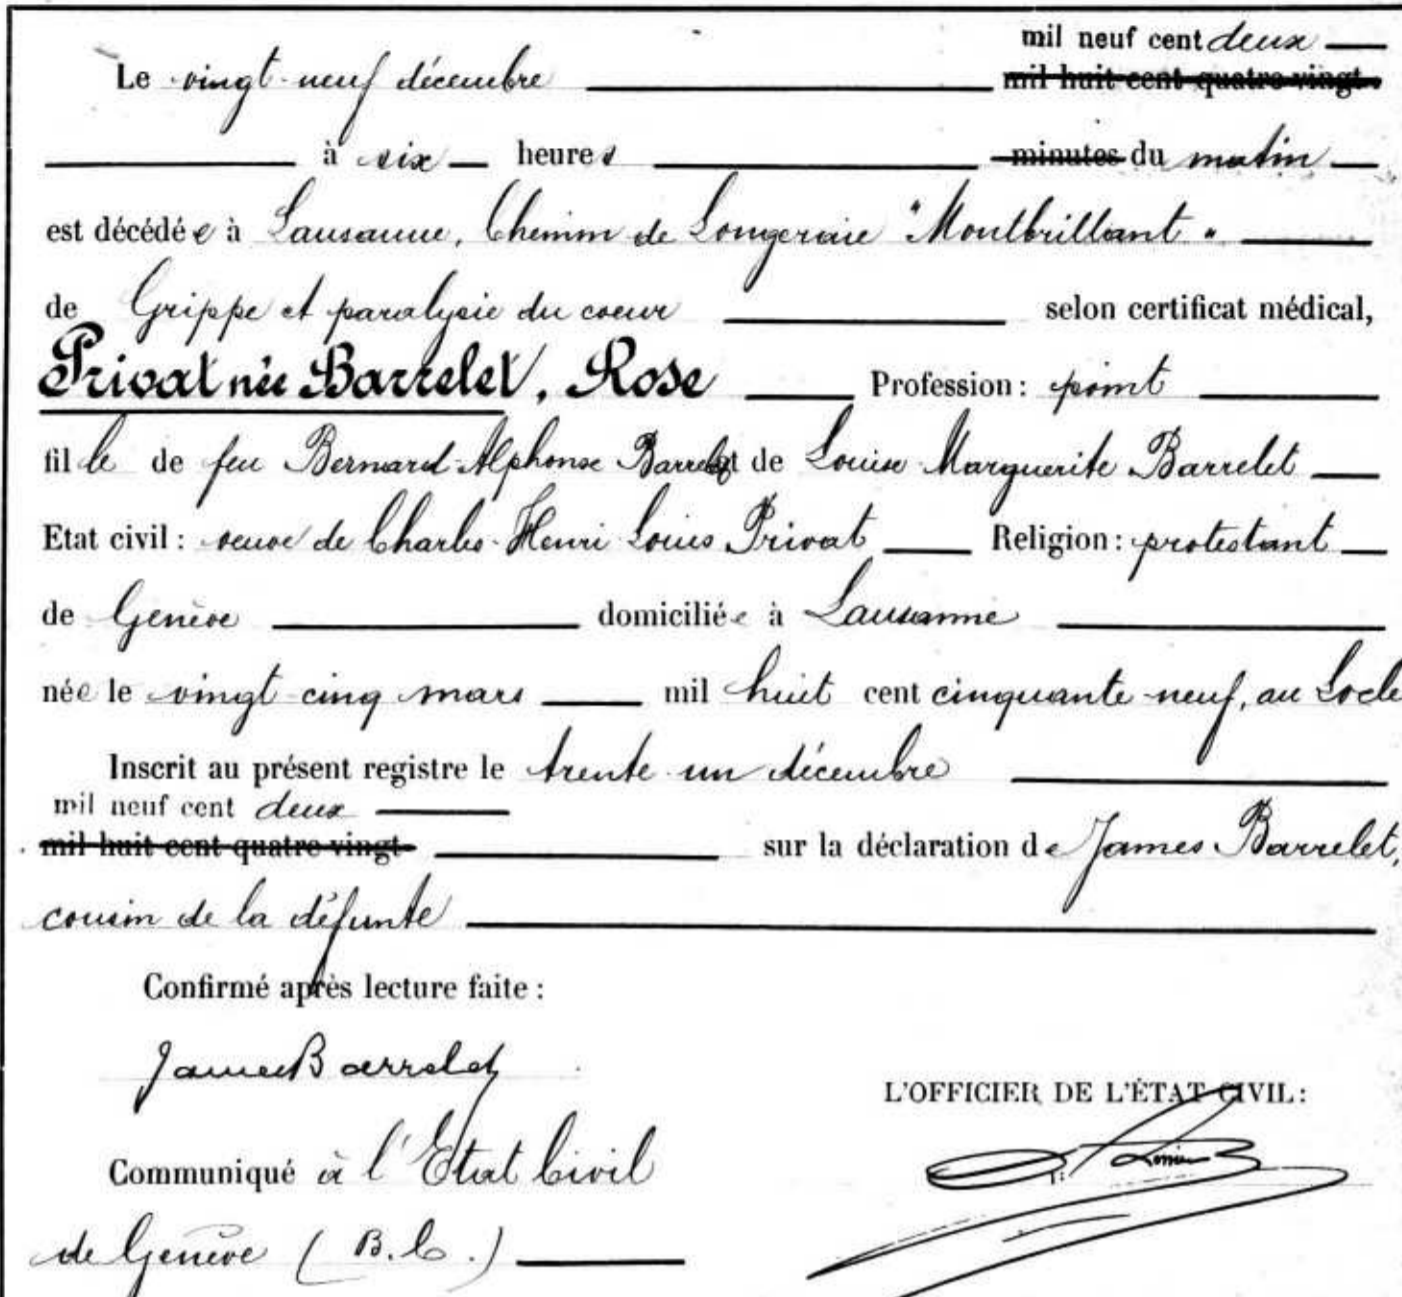 mil neuf cent deux
Le vingt-neuf décembre mil huit cent quatre-vingt-
à six heures minutes du matin
est décédée à Lausanne, Chemin de Longeraie "Montbrillant"
de Grippe et paralysie du coeur selon certificat médical,
Privat née Barrelet, Rose Profession: point
fille de feu Bernard-Alphonse Barrelet et de Louise Marguerite Barrelet
Etat civil: veuve de Charles-Henri Louis Privat Religion: protestant
de Genève domiciliée à Lausanne
née le vingt-cinq mars mil huit cent cinquante-neuf, au Locle
Inscrit au présent registre le trente-un décembre
mil neuf cent deux
mil huit cent quatre-vingt- sur la déclaration de James Barrelet,
cousin de la défunte
Confirmé après lecture faite:
James Barrelet
L'OFFICIER DE L'ÉTAT CIVIL:
Communiqué à l'Etat Civil
de Genève (B.C.)